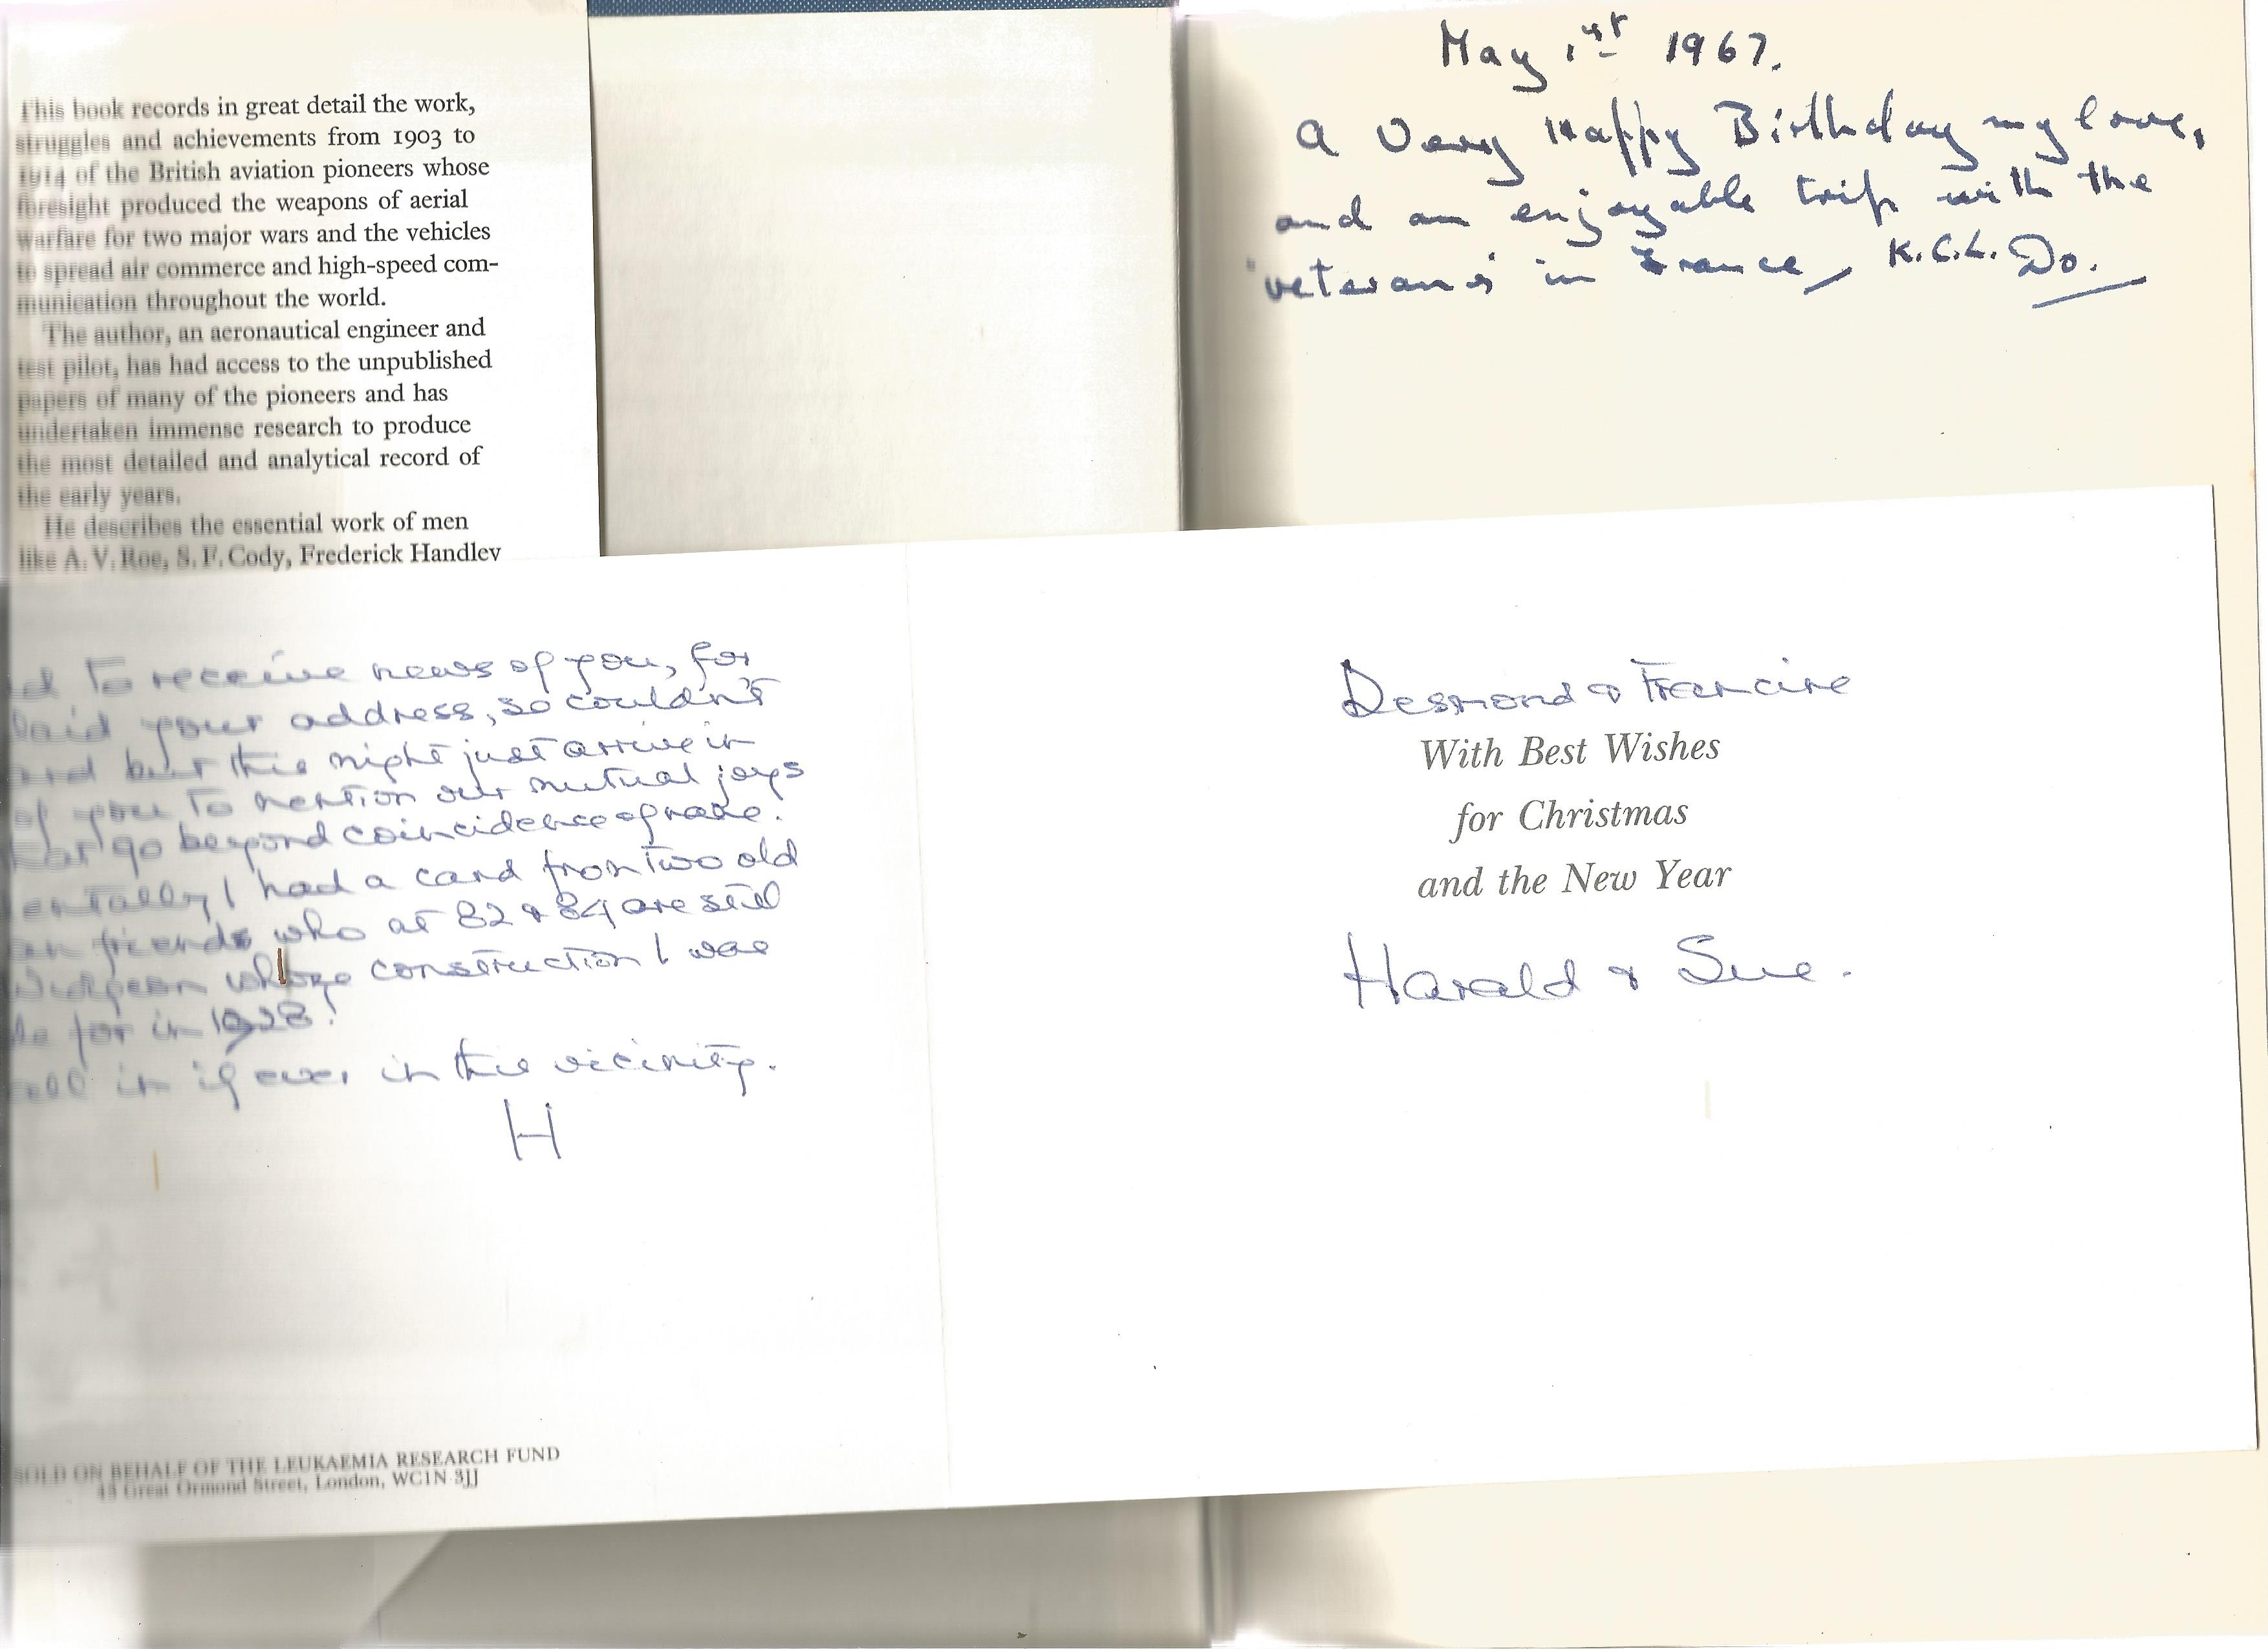 This book records in great detail the work,
struggles and achievements from 1903 to
1914 of the British aviation pioneers whose
foresight produced the weapons of aerial
warfare for two major wars and the vehicles
to spread air commerce and high-speed com-
munication throughout the world.
The author, an aeronautical engineer and
test pilot, has had access to the unpublished
papers of many of the pioneers and has
undertaken immense research to produce
the most detailed and analytical record of
the early years.
He describes the essential work of men
like A. V. Roe, S. F. Cody, Frederick Handley
May 1st 1967.
A Very Happy Birthday my love,
and an enjoyable trip with the
'veterans' in France, K.C.L. Do.
d to receive news of you, for
laid your address, so couldn't
ard but this might just arrive in
of you to mention our mutual joys
that go beyond coincidence of name.
entally, I had a card from two old
an friends who at 82 & 84 are still
Widgeon whose construction I was
le for in 1928!
all in if ever in this vicinity.
H
SOLD ON BEHALF OF THE LEUKAEMIA RESEARCH FUND
43 Great Ormond Street, London, WC1N 3JJ
Desmond & Francine
With Best Wishes
for Christmas
and the New Year
Harald & Sue.